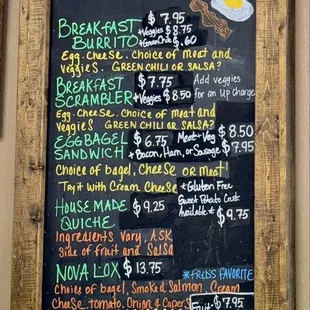 BREAKFAST $7.95
BURRITO +Veggies $8.75
+Green Chili $.60
Egg. Cheese. Choice of meat and
veggies. GREEN CHILI OR SALSA?
BREAKFAST $7.75 Add veggies
SCRAMBLER +Veggies $8.50 for an up charge
Egg. Cheese. Choice of meat and
veggies GREEN CHILI OR SALSA?
EGG BAGEL $6.75 Meat+Veg $8.50
SANDWICH +Bacon, Ham, or Sausage $7.95
Choice of bagel, cheese or meat!
Try it with Cream Cheese *Gluten Free
Sweet Potato Crust
HOUSE MADE $9.25 Available* $9.75
QUICHE
Ingredients Vary, ASK
side of fruit and Salsa
NOVA LOX $13.75 *FRED'S FAVORITE
Choice of bagel, Smoked Salmon, Cream
Cheese, tomato, Onion & Capers
Fruit $7.95